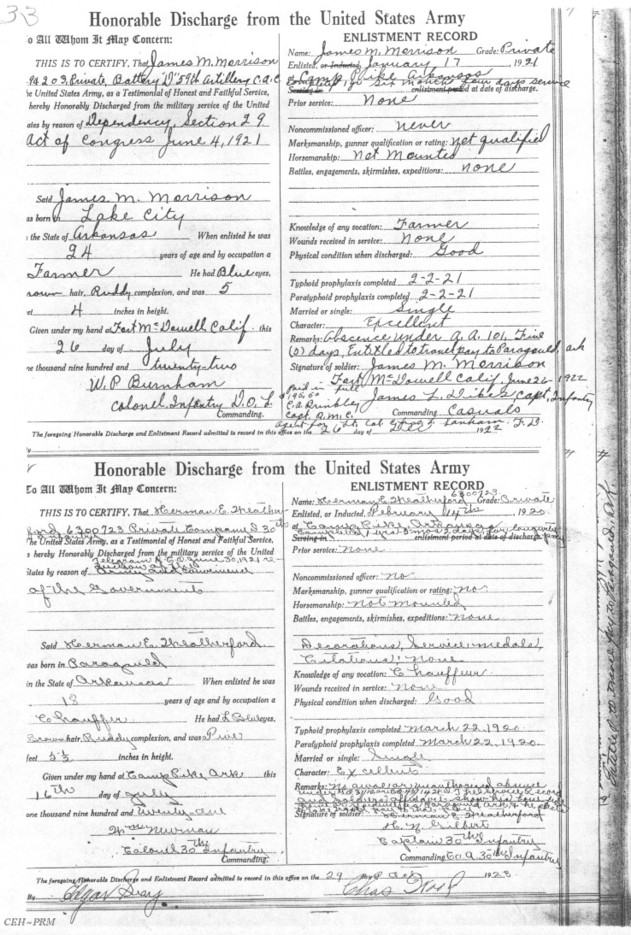 33
Honorable Discharge from the United States Army
To All Whom It May Concern:
THIS IS TO CERTIFY, That James M. Morrison
94203, Private, Battery "D" 59th Artillery C.A.C.
The United States Army, as a Testimonial of Honest and Faithful Service,
hereby Honorably Discharged from the military service of the United
States by reason of Dependency, Section 29
Act of Congress June 4, 1921
Said James M. Morrison
was born in Lake City
in the State of Arkansas When enlisted he was
24 years of age and by occupation a
Farmer He had Blue eyes,
Brown hair, Ruddy complexion, and was 5
feet 4 inches in height.
Given under my hand at Fort McDowell Calif. this
26 day of July
one thousand nine hundred and twenty-two
W.P. Burnham
Colonel Infantry D.O.L.
Commanding.
ENLISTMENT RECORD
Name: James M. Morrison Grade: Private
Enlisted, or Inducted, January 17 1921
Camp Pike Arkansas
six months four days service
Serving in enlistment period at date of discharge.
Prior service: None
Noncommissioned officer: never
Marksmanship, gunner qualification or rating: Not qualified
Horsemanship: Not Mounted
Battles, engagements, skirmishes, expeditions: none
Knowledge of any vocation: Farmer
Wounds received in service: None
Physical condition when discharged: Good
Typhoid prophylaxis completed 2-2-21
Paratyphoid prophylaxis completed 2-2-21
Married or single: Single
Character: Excellent
Remarks: Abscence under A.A. 101, Five
(5) days, Entitled to travel pay to Paragould, Ark
Signature of soldier: James M. Morrison
Fort McDowell Calif. June 26-1922
Paid in full
James L. Capt, Infantry
Capt. Q.M.C. Commanding Casuals
Agent for Lt. Col. F.D.
The foregoing Honorable Discharge and Enlistment Record admitted to record in this office on the 26 day of Dec 1922
Honorable Discharge from the United States Army
To All Whom It May Concern:
THIS IS TO CERTIFY, That Herman E. Weatherford
6300723 Private Company D 30th
The United States Army, as a Testimonial of Honest and Faithful Service,
is hereby Honorably Discharged from the military service of the United
States by reason of
of the Government
Said Herman E. Weatherford
was born in Paragould
in the State of Arkansas When enlisted he was
18 years of age and by occupation a
Chauffer He had eyes,
Brown hair, Ruddy complexion, and was Five
feet 5½ inches in height.
Given under my hand at Camp Pike Ark this
16th day of July
one thousand nine hundred and twenty one
Wm Newman
Colonel 30th Infantry
Commanding.
ENLISTMENT RECORD
6300723
Name: Herman E. Weatherford Grade: Private
Enlisted, or Inducted, February 14th, 1920
at Camp Pike Arkansas
Serving in enlistment period at date of discharge
Prior service: None
Noncommissioned officer: No
Marksmanship, gunner qualification or rating: No
Horsemanship: Not mounted
Battles, engagements, skirmishes, expeditions: None
Decorations, Service medals,
Citations: None
Knowledge of any vocation: Chauffeur
Wounds received in service: None
Physical condition when discharged: Good
Typhoid prophylaxis completed March 22, 1920
Paratyphoid prophylaxis completed March 22, 1920
Married or single: Single
Character: Excellent
Remarks: No awol or unauthorized absence
Signature of soldier: Herman E. Weatherford
H. N. Gilbert
Captain 30th Infantry
Commanding Co. A. 30th Infantry
The foregoing Honorable Discharge and Enlistment Record admitted to record in this office on the 29 day of Dec 1922
By Edgar Chas
Entitled to travel pay to Paragould, Ark
CEH-PRM